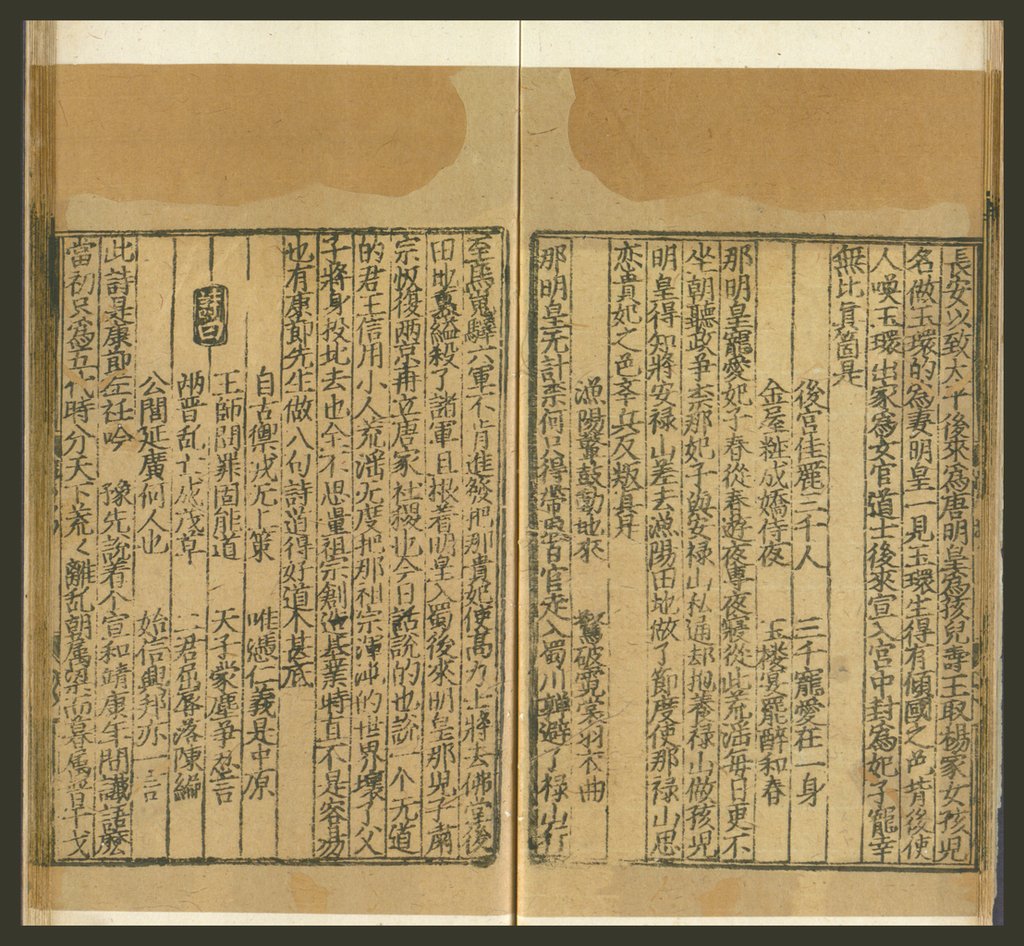 長安以致大平後來為唐明皇為孩兒壽王取楊家女孩兒
名做玉環的為妻明皇一見玉環生得有傾國之色背後使
人喚玉環出家為女官道士後來宣入宮中封為妃子寵幸
無比真箇是
後宮佳麗三千人　三千寵愛在一身
金屋粧成嬌侍夜　玉楼宴罷醉和春
那明皇寵愛妃子春從春遊夜專夜寢從此荒淫每日更不
坐朝聽政爭柰那妃子與安禄山私通却抱養禄山做孩兒
明皇得知將安禄山差去漁陽田地做了節度使那禄山思
恋貴妃之色举兵反叛真是
漁陽鼙鼓動地來　驚破霓裳羽衣曲
那明皇无計柰何只得帶百官走入蜀川躲避了禄山行
至馬嵬驛六軍不肯進發把那貴妃使高力士將去佛堂後
田地裏縊殺了諸軍且根着明皇入蜀後來明皇那兒子肅
宗恢復兩京再立唐家社稷也今日話說的也說一个无道
的君王信用小人荒淫无度把那祖宗渾沌的世界壞了父
子將身投北去也全不思量祖宗創造基業時直不是容易
也有康節先生做八句詩道得好道木甚底
詩曰
自古禦戎无上策　唯憑仁義是中原
王師問罪固能道　天子蒙塵爭忍言
兩晋乱亡成茂草　二君屈辱落陳編
公閭延廣何人也　始信興邦亦一言
此詩是康節左衽吟　豫先說着个宣和靖康年間讖語麽
當初只為五代時分天下荒く離乱朝属梁而暮属晋干戈